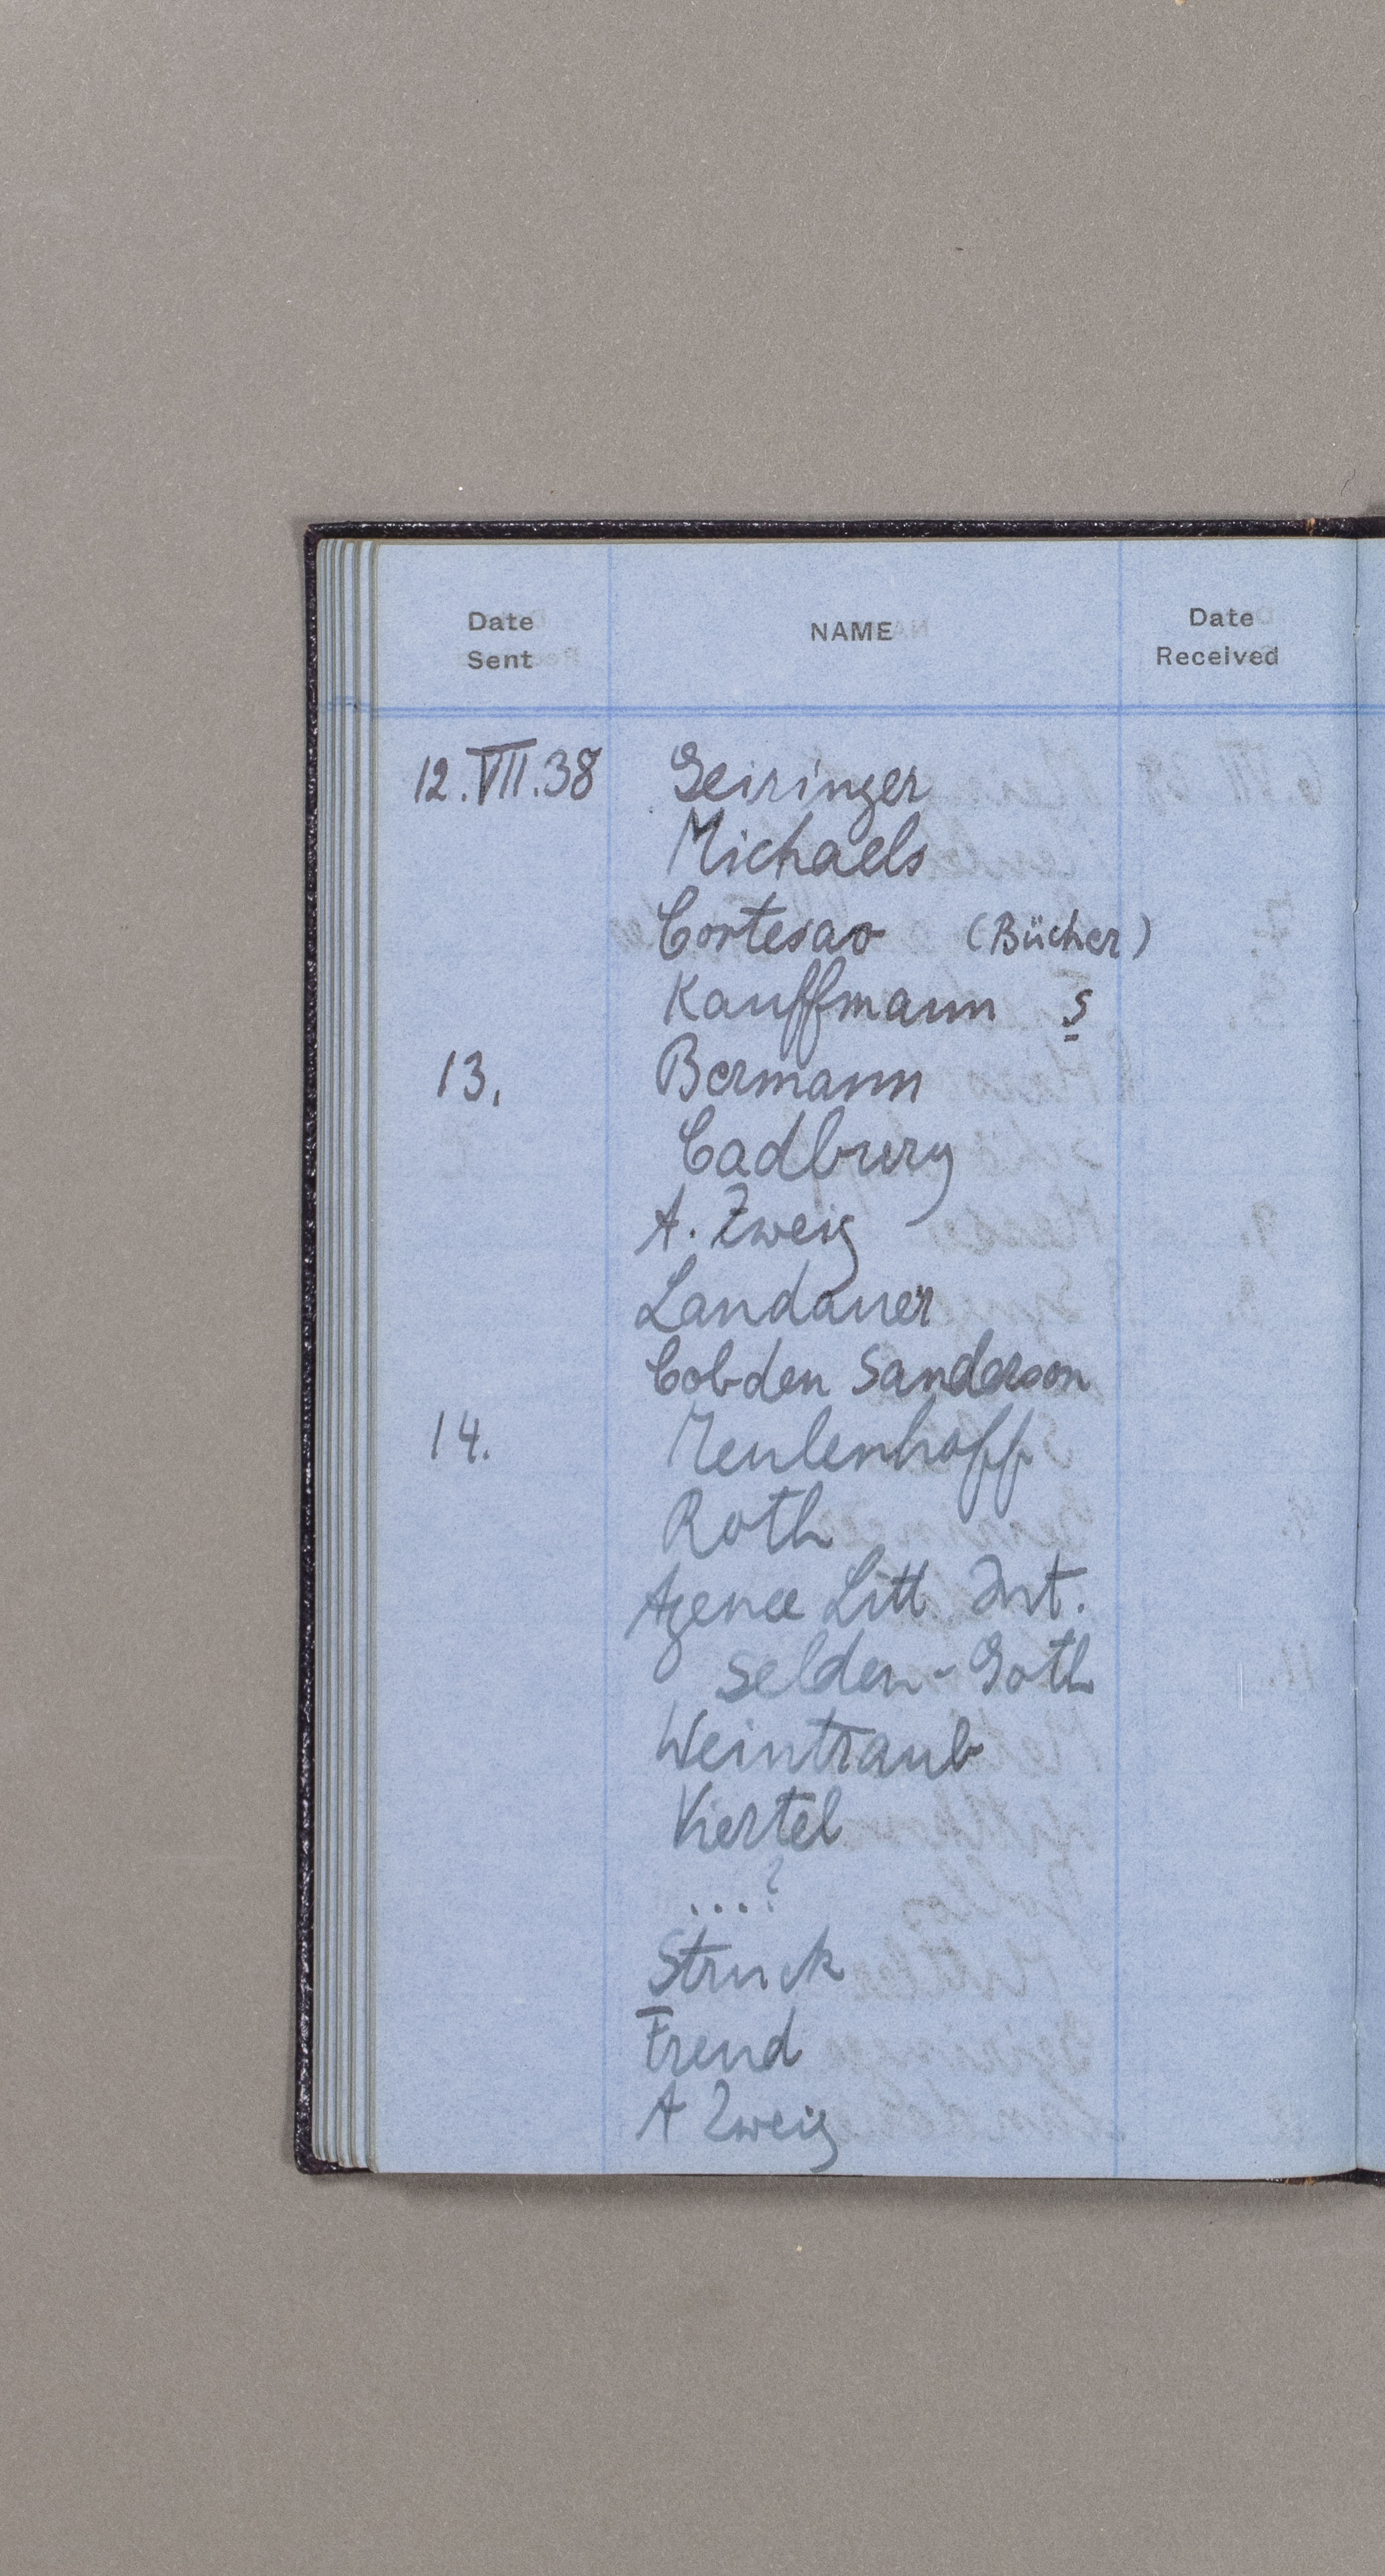 Date Sent NAME Date Received
12.VII.38 Geiringer
Michaels
Cortesao (Bücher)
Kauffmann s
13. Bermann
Cadbury
A. Zweig
Landauer
Cobden Sanderson
14. Meulenhoff
Roth
Agence Litt. Int.
Selden-Goth
Weintraub
Viertel
...?
Struck
Freud
A Zweig